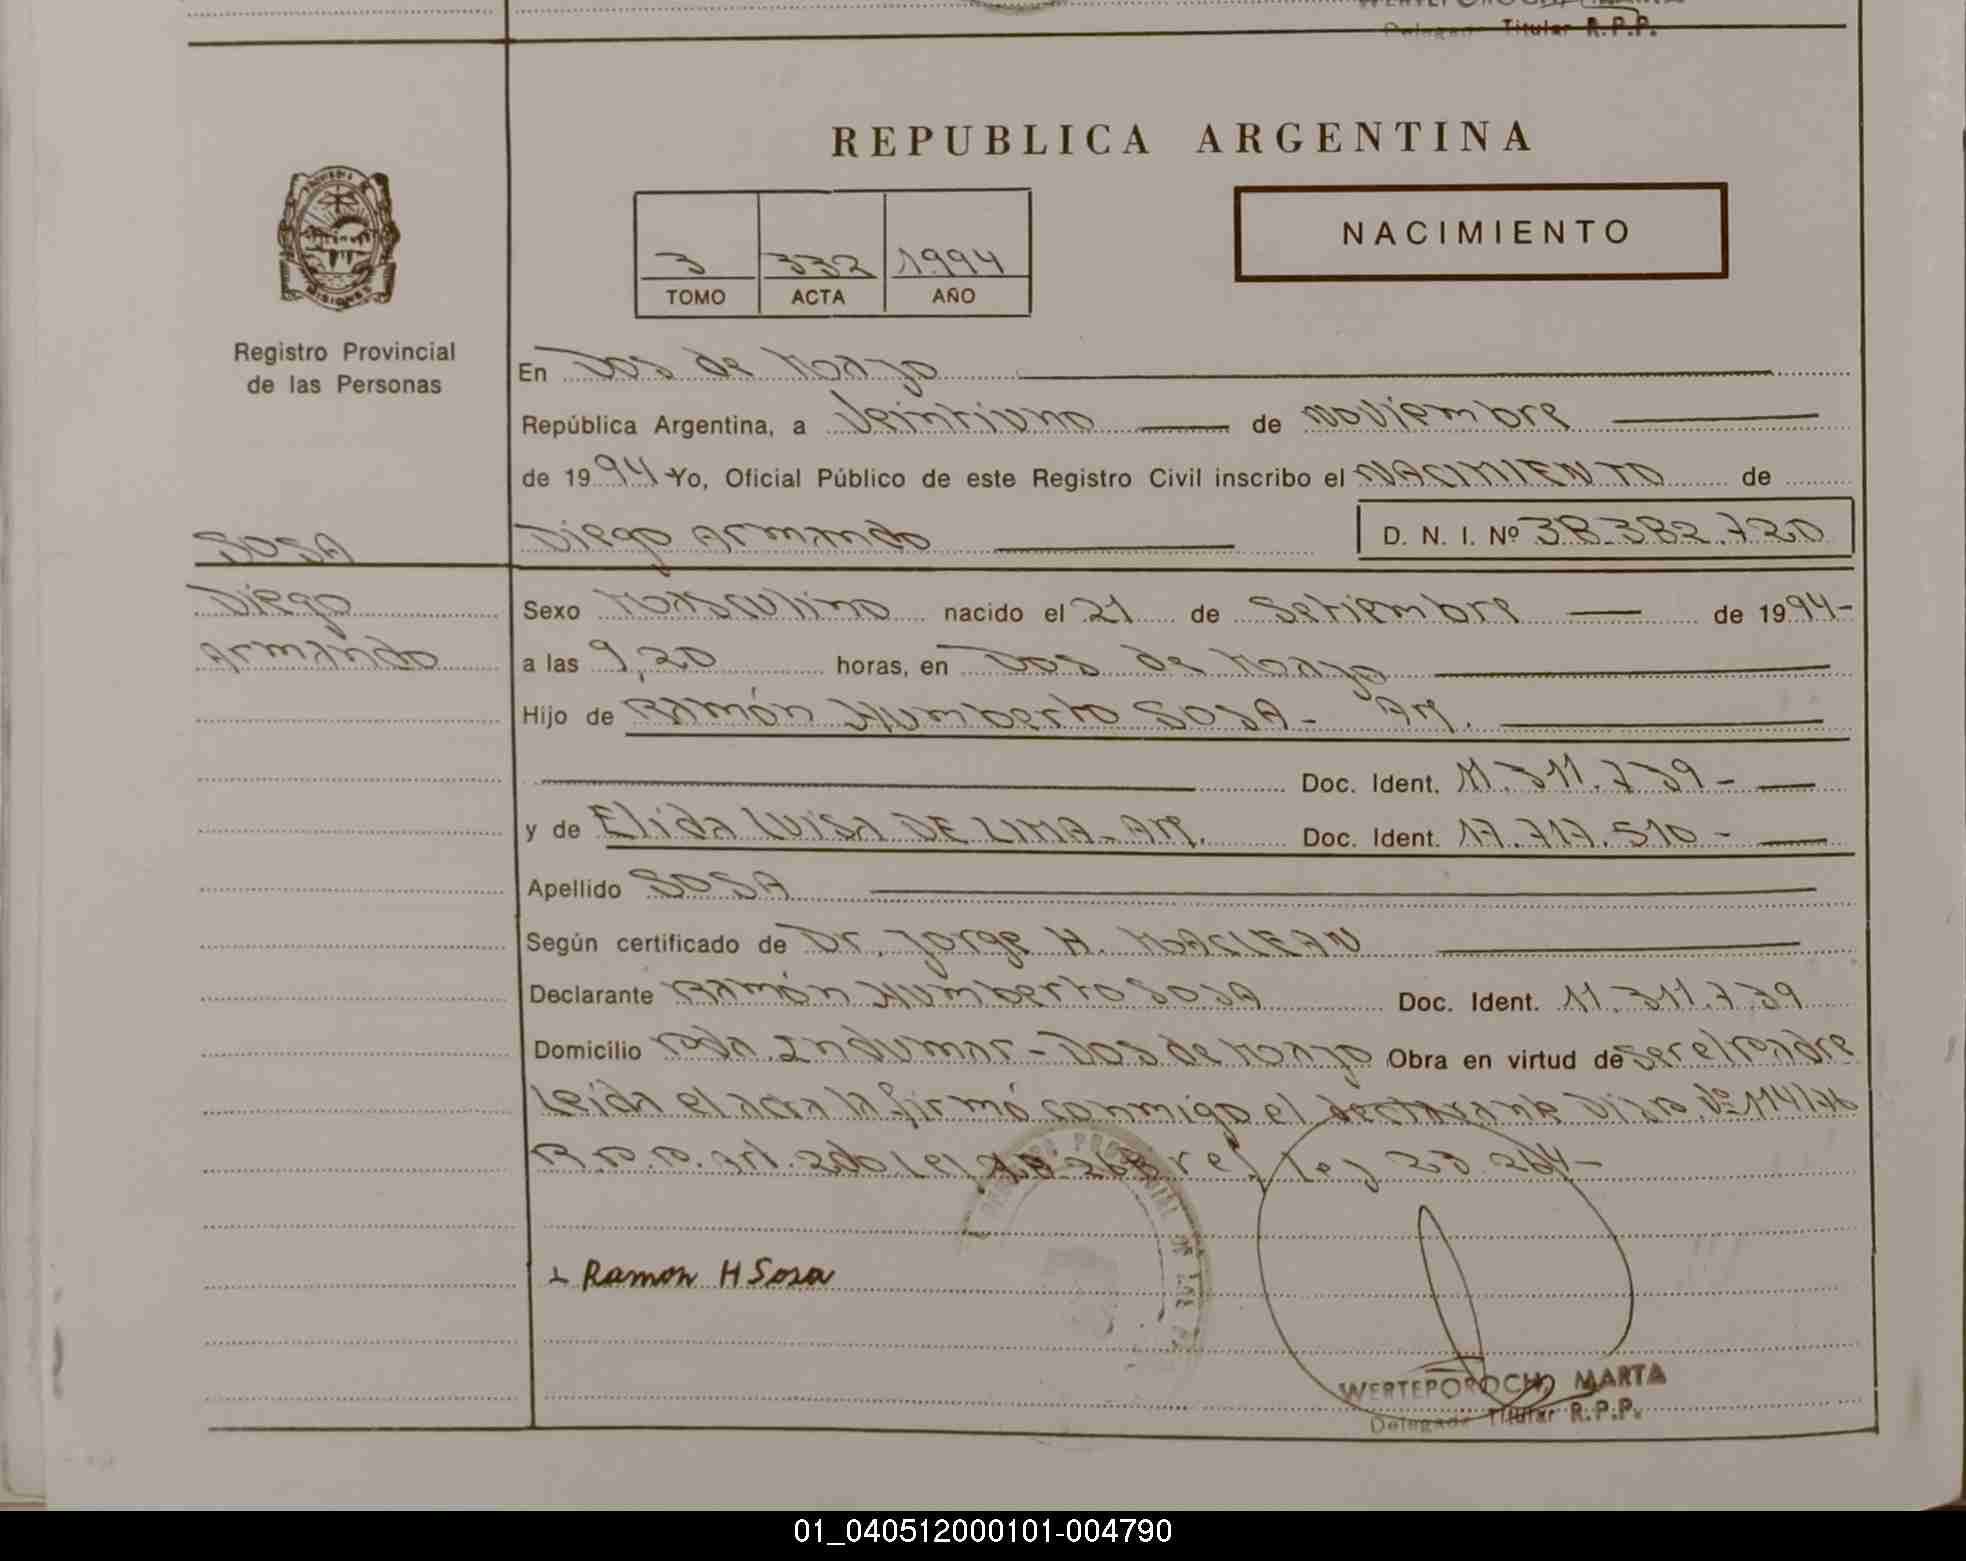 Titular R.P.P.
REPUBLICA ARGENTINA
NACIMIENTO
3 332 1994
TOMO ACTA AÑO
Registro Provincial
de las Personas
En Dos de Mayo
República Argentina, a Veintiuno de noviembre
de 1994 Yo, Oficial Público de este Registro Civil inscribo el NACIMIENTO de
SOSA
Diego Armando D. N. I. Nº 38.382.720
Diego
Armando
Sexo Masculino nacido el 21 de Setiembre de 1994-
a las 9,20 horas, en Dos de Mayo
Hijo de Ramón Humberto SOSA- Ar.
Doc. Ident. 11.311.739-
y de Elida LUISA DE LIMA-Ar. Doc. Ident. 17.717.510-
Apellido SOSA
Según certificado de Dr. Jorge H. MACLEAN
Declarante Ramón Humberto SOSA Doc. Ident. 11.311.739
Domicilio Pda. Indumar-Dos de Mayo Obra en virtud de ser el padre
Leída el acta la firmó conmigo el declarante Disp. Nº 114/76
R.P.P. Art. 2do Lei ref Ley 23.264-
Ramon H Sosa
WERTEPOROCH, MARTA
Delegada Titular R.P.P.
01_040512000101-004790